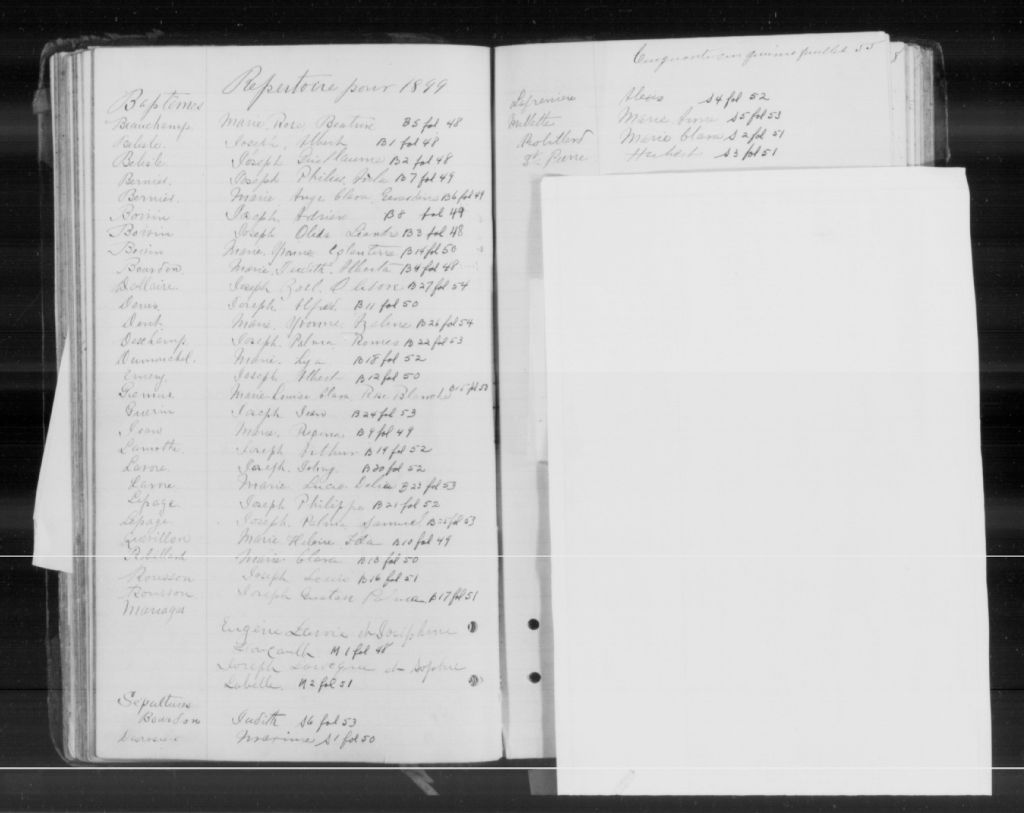 Repertoire pour 1899
Baptêmes
Beauchamp Marie Rose Beatrice B5 fol 48
Belisle Joseph Albert B1 fol 48
Belisle Joseph Guillaume B2 fol 48
Bernier Joseph Philias B7 fol 49
Bernier Marie Ange Clara B6 fol 49
Boivin Joseph Adrien B8 fol 49
Boivin Joseph B3 fol 48
Boivin Marie Yvonne B14 fol 50
Bourdon Marie Judith Alberta B4 fol 48
Joseph B27 fol 54
Denis Joseph Alfred B11 fol 50
Marie Yvonne B26 fol 54
Deschamp Joseph Palma Romeo B22 fol 53
Dumouchel Marie B18 fol 52
Emery Joseph Albert B12 fol 50
Marie Louise Clara Rose Blanche B15 fol 50
Guerin Joseph Jean B24 fol 53
Jean Marie Regina B9 fol 49
Lamothe Joseph Arthur B19 fol 52
Lavoie Joseph B20 fol 52
Lavoie Marie Lucie Delia B23 fol 53
Lepage Joseph Philippe B21 fol 52
Lepage Joseph Palma Samuel B25 fol 53
Marie Ida B10 fol 49
Robillard Marie Clara B13 fol 50
Rousson Joseph Louis B16 fol 51
Rousson Joseph Gustave Palma B17 fol 51
Mariages
Eugène Lavoie et Josephine
M1 fol 48
Joseph et Sophie
Labelle M2 fol 51
Sépultures
Bourdon Judith S6 fol 53
S1 fol 50
Cinquante cinquième feuillet 55
Lafrenière Alexis S4 fol 52
Marie Anna S5 fol 53
Robillard Marie Clara S2 fol 51
St. Pierre S3 fol 51